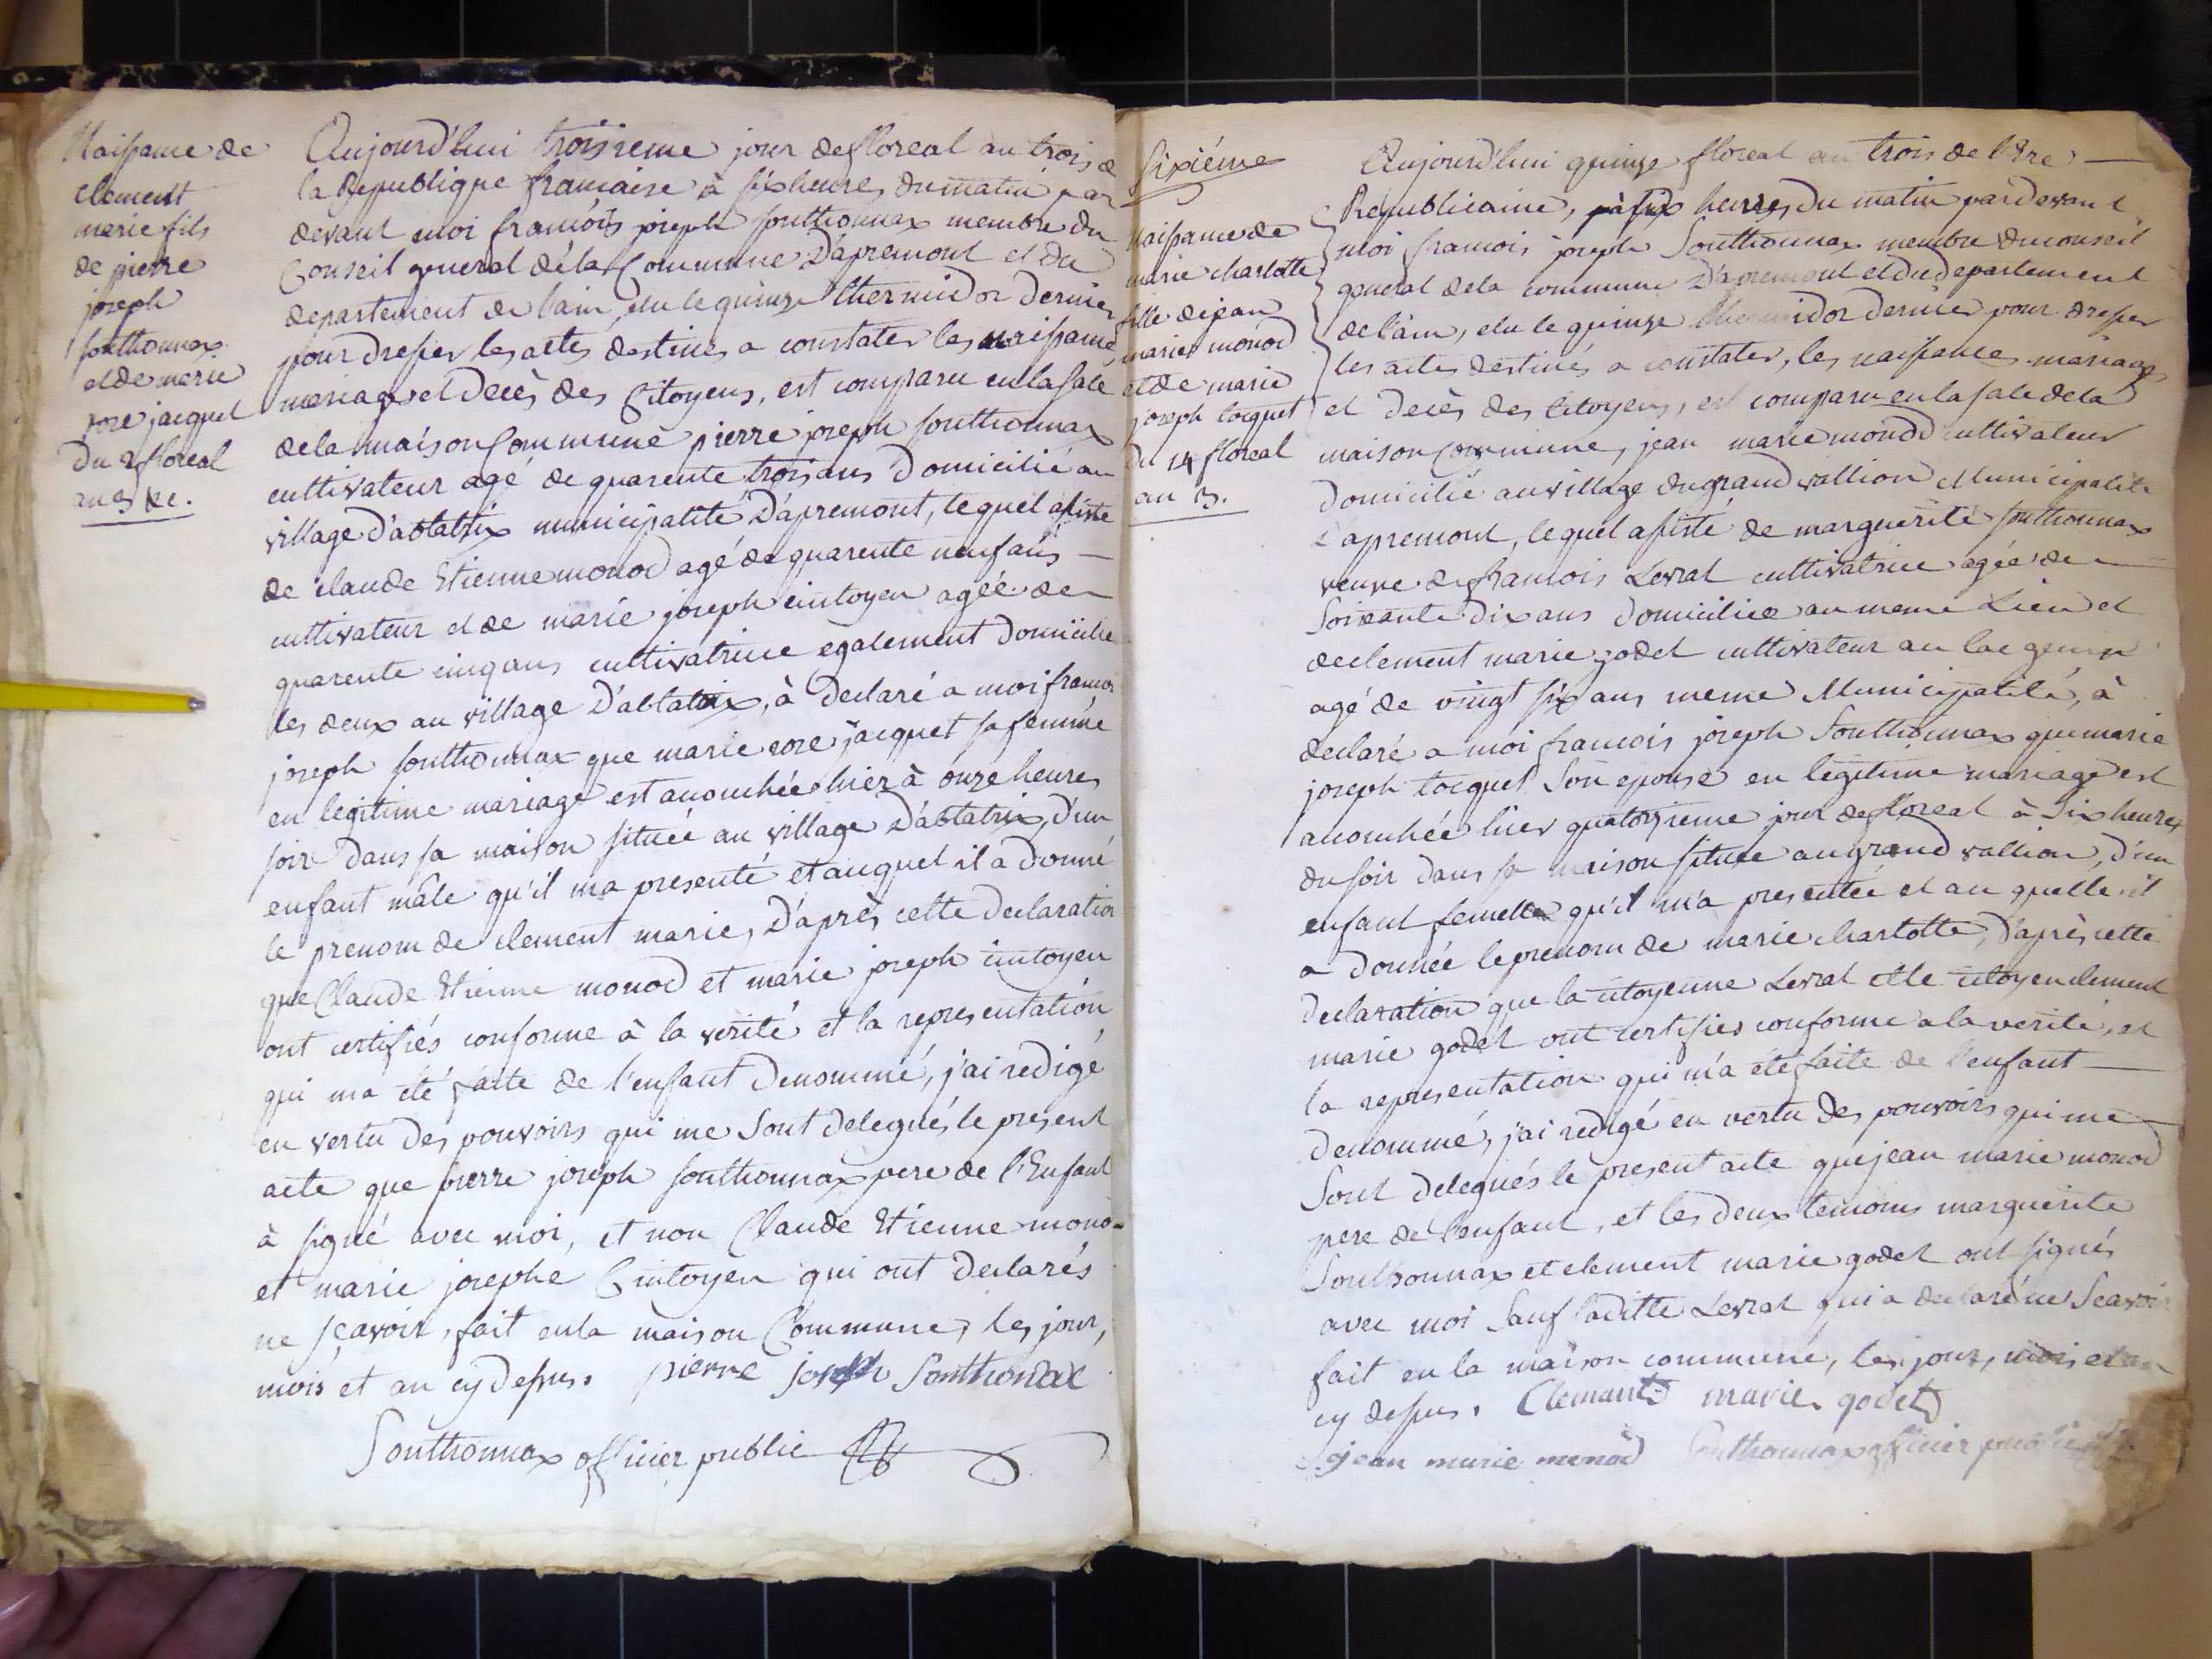 Naissance de
clement
marie fils
de pierre
joseph
southonnax
et de marie
rose jacquet
du 2 floreal
an 3 &c.
Aujourd'hui troisieme jour de floreal an trois de
la Republique francaise à six heures du matin par
devant moi francois joseph southonnax membre du
Conseil general de la Commune D'apremont et du
departement de l'ain, elu le quinze thermidor dernier
pour dresser les actes destinés a constater les naissance
mariage et decès des Citoyens, est comparu en la sale
de la maison Commune pierre joseph southonnax
cultivateur agé de quarente trois ans Domicilié au
village d'ablatrix municipalité D'apremont, lequel assisté
de claude Etienne monod agé de quarente neuf ans —
cultivateur et de marie joseph cintoyen agée de
quarente cinq ans cultivatrice egalement Domicilie
les deux au village D'ablatrix, à declaré a moi francois
joseph southonnax que marie rose jacquet sa femme
en legitime mariage est acouchée hier à onze heures
soir dans sa maison située au village D'ablatrix, d'un
enfant mâle qu'il ma presenté et auquel il a Donné
le prenom de clement marie, D'après cette declaration
que Claude Etienne monod et marie joseph cintoyen
ont certifiés conforme à la verité et la representation
qui ma été faite de l'enfant Denommé, j'ai redigé
en vertu des pouvoirs qui me Sont delegués le present
acte que pierre joseph southonnax pere de l'Enfant
à signé avec moi, et non Claude Etienne mono
et marie josephe Cintoyen qui ont declarés
ne sçavoir, fait en la maison Commune, les jour,
mois et an cy dessus. pierre joseph Sonthonax
Southonnax officier public
Sixiéme
Naissance de
marie charlotte
fille de jean
marie monod
et de marie
joseph tocquet
du 14 floreal
an 3.
Aujourd'hui quinze floreal an trois de l'Ere —
Republicaine, à six heures du matin pardevant
moi francois joseph Southonnax membre du conseil
general dela commune D'apremont et du departement
de l'ain, elu le quinze thermidor dernier pour dresser
les actes destinés a constater, les naissances mariages
et decès des Citoyens, est comparu en la sale dela
maison Commune, jean marie monod cultivateur
domicilié au village du grand vallion Municipalité
D'apremont, lequel assisté de marguerite southonnax
veuve de francois Levrat cultivatrice agée de —
Soixante Dix ans Domiciliée au meme Lieu et
de clement marie godet cultivateur au lac genin
agé de vingt six ans meme Municipalité, à
declaré a moi francois joseph Southonnax que marie
joseph tocquet Son epouse en légitime mariage est
acouchée hier quatorzieme jour de floreal à Six heures
du soir dans sa maison située au grand vallion, d'un
enfant femelle qu'il m'a presentée et au quelle il
a donnée le prenom de marie charlotte, D'après cette
Declaration que la citoyenne Levrat et le citoyen clement
marie godet ont certifiés conforme a la verité, et
la representation qui m'a été faite de l'enfant —
Denommé, j'ai redigé en vertu des pouvoirs qui me
Sont delegués le present acte que jean marie monod
pere de l'enfant, et les deux temoins marguerite
Southonnax et clement marie godet ont signés
avec moi Sauf laditte Levrat qui a declaré ne Scavoir
fait en la maison commune, les jour, mois et an
cy dessus. Clemant marie godet
jean marie monod Southonnax officier public